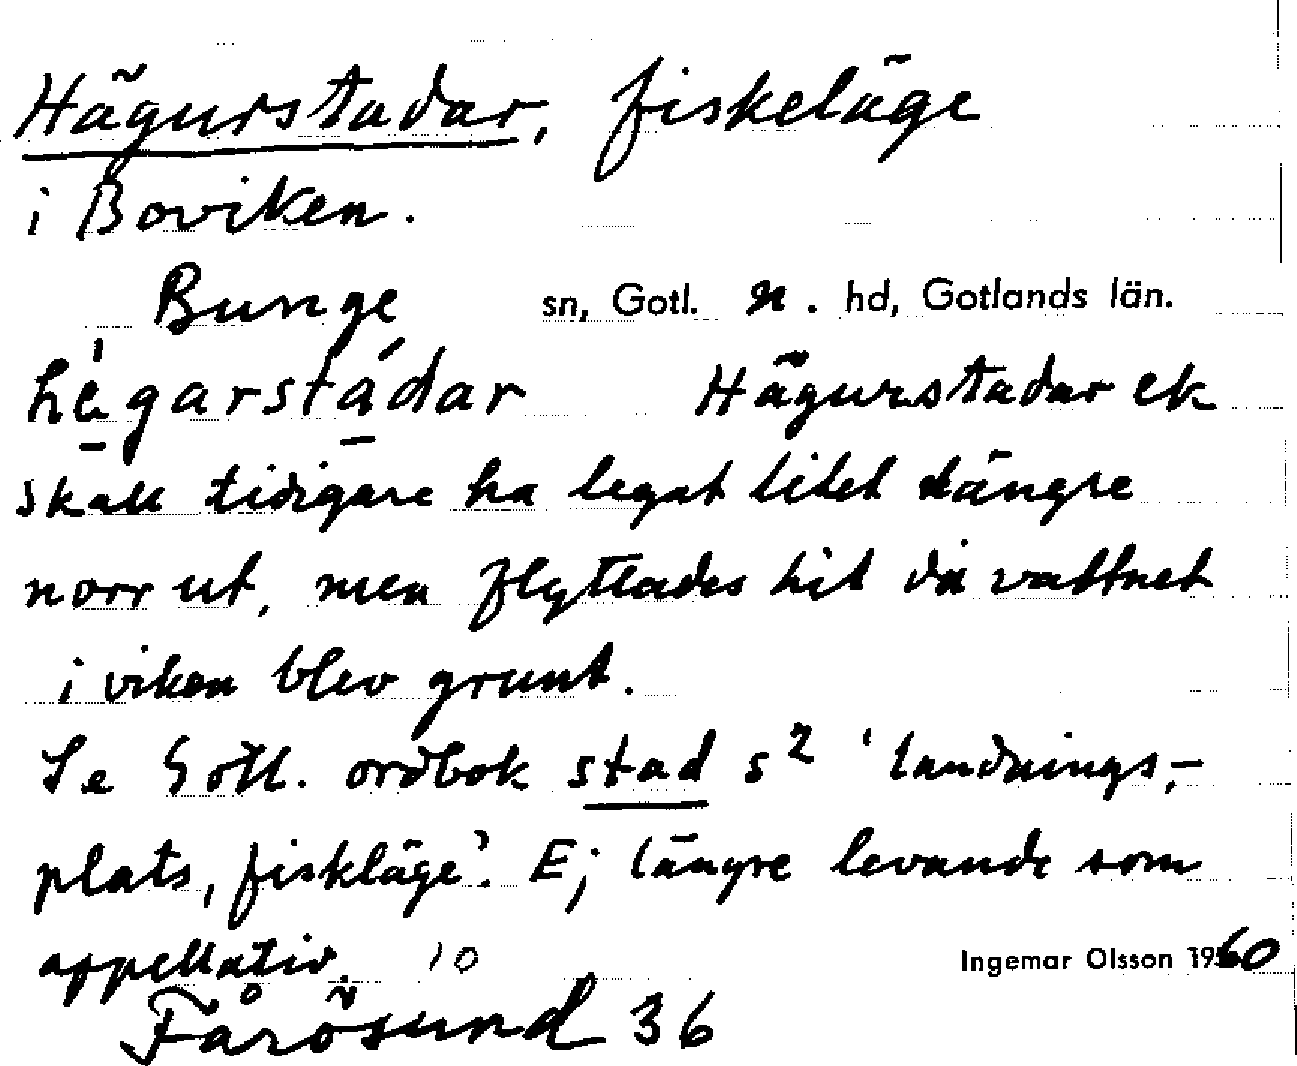 Hägurstadar, fiskeläge
i Boviken.
Bunge sn, Gotl. n. hd, Gotlands län.
hègarstádar Hägurstadar ek
skall tidigare ha legat litet längre
norr ut, men flyttades hit då vattnet
i viken blev grunt.
Se Gotl. ordbok stad s² 'landnings-
plats, fiskläge'. Ej längre levande som
appellativ. 10 Ingemar Olsson 1960
Fårösund 36